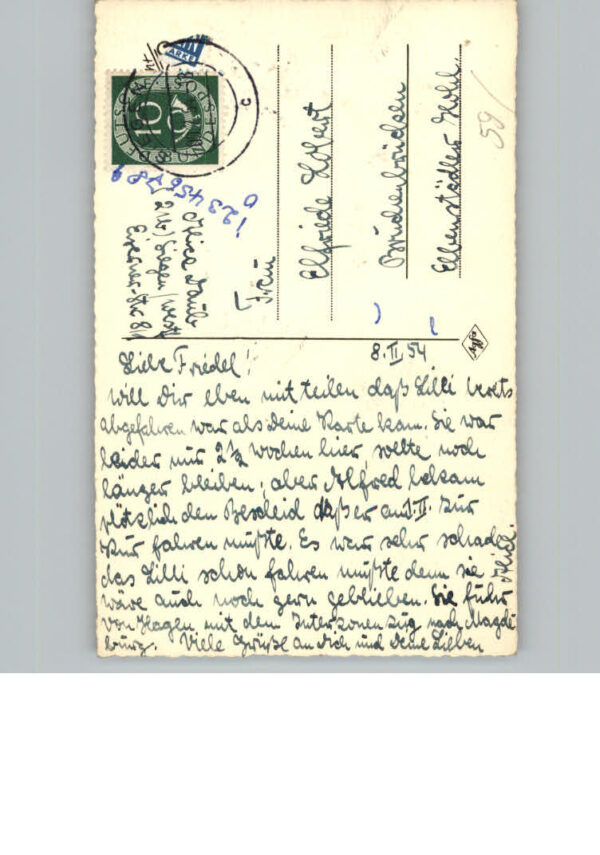 8.II.54
Liebe Friedel!
Will Dir eben mitteilen daß Lilli bereits
abgefahren war als Deine Karte kam. Sie war
leider nur 2½ Wochen hier, sollte noch
länger bleiben, aber Alfred bekam
plötzlich den Bescheid daß er am II. zur
Kur fahren mußte. Es war sehr schade
das Lilli schon fahren mußte denn sie
wäre auch noch gern geblieben. Sie fuhr
von Hagen mit dem Interzonenzug nach Magde
burg. Viele Grüße an Dich und Deine Lieben
Frau
Elfriede
Alice Daub
Siegen/Westf
123456789
0
DEUTSCHE BUNDESPOST
10
59/
c